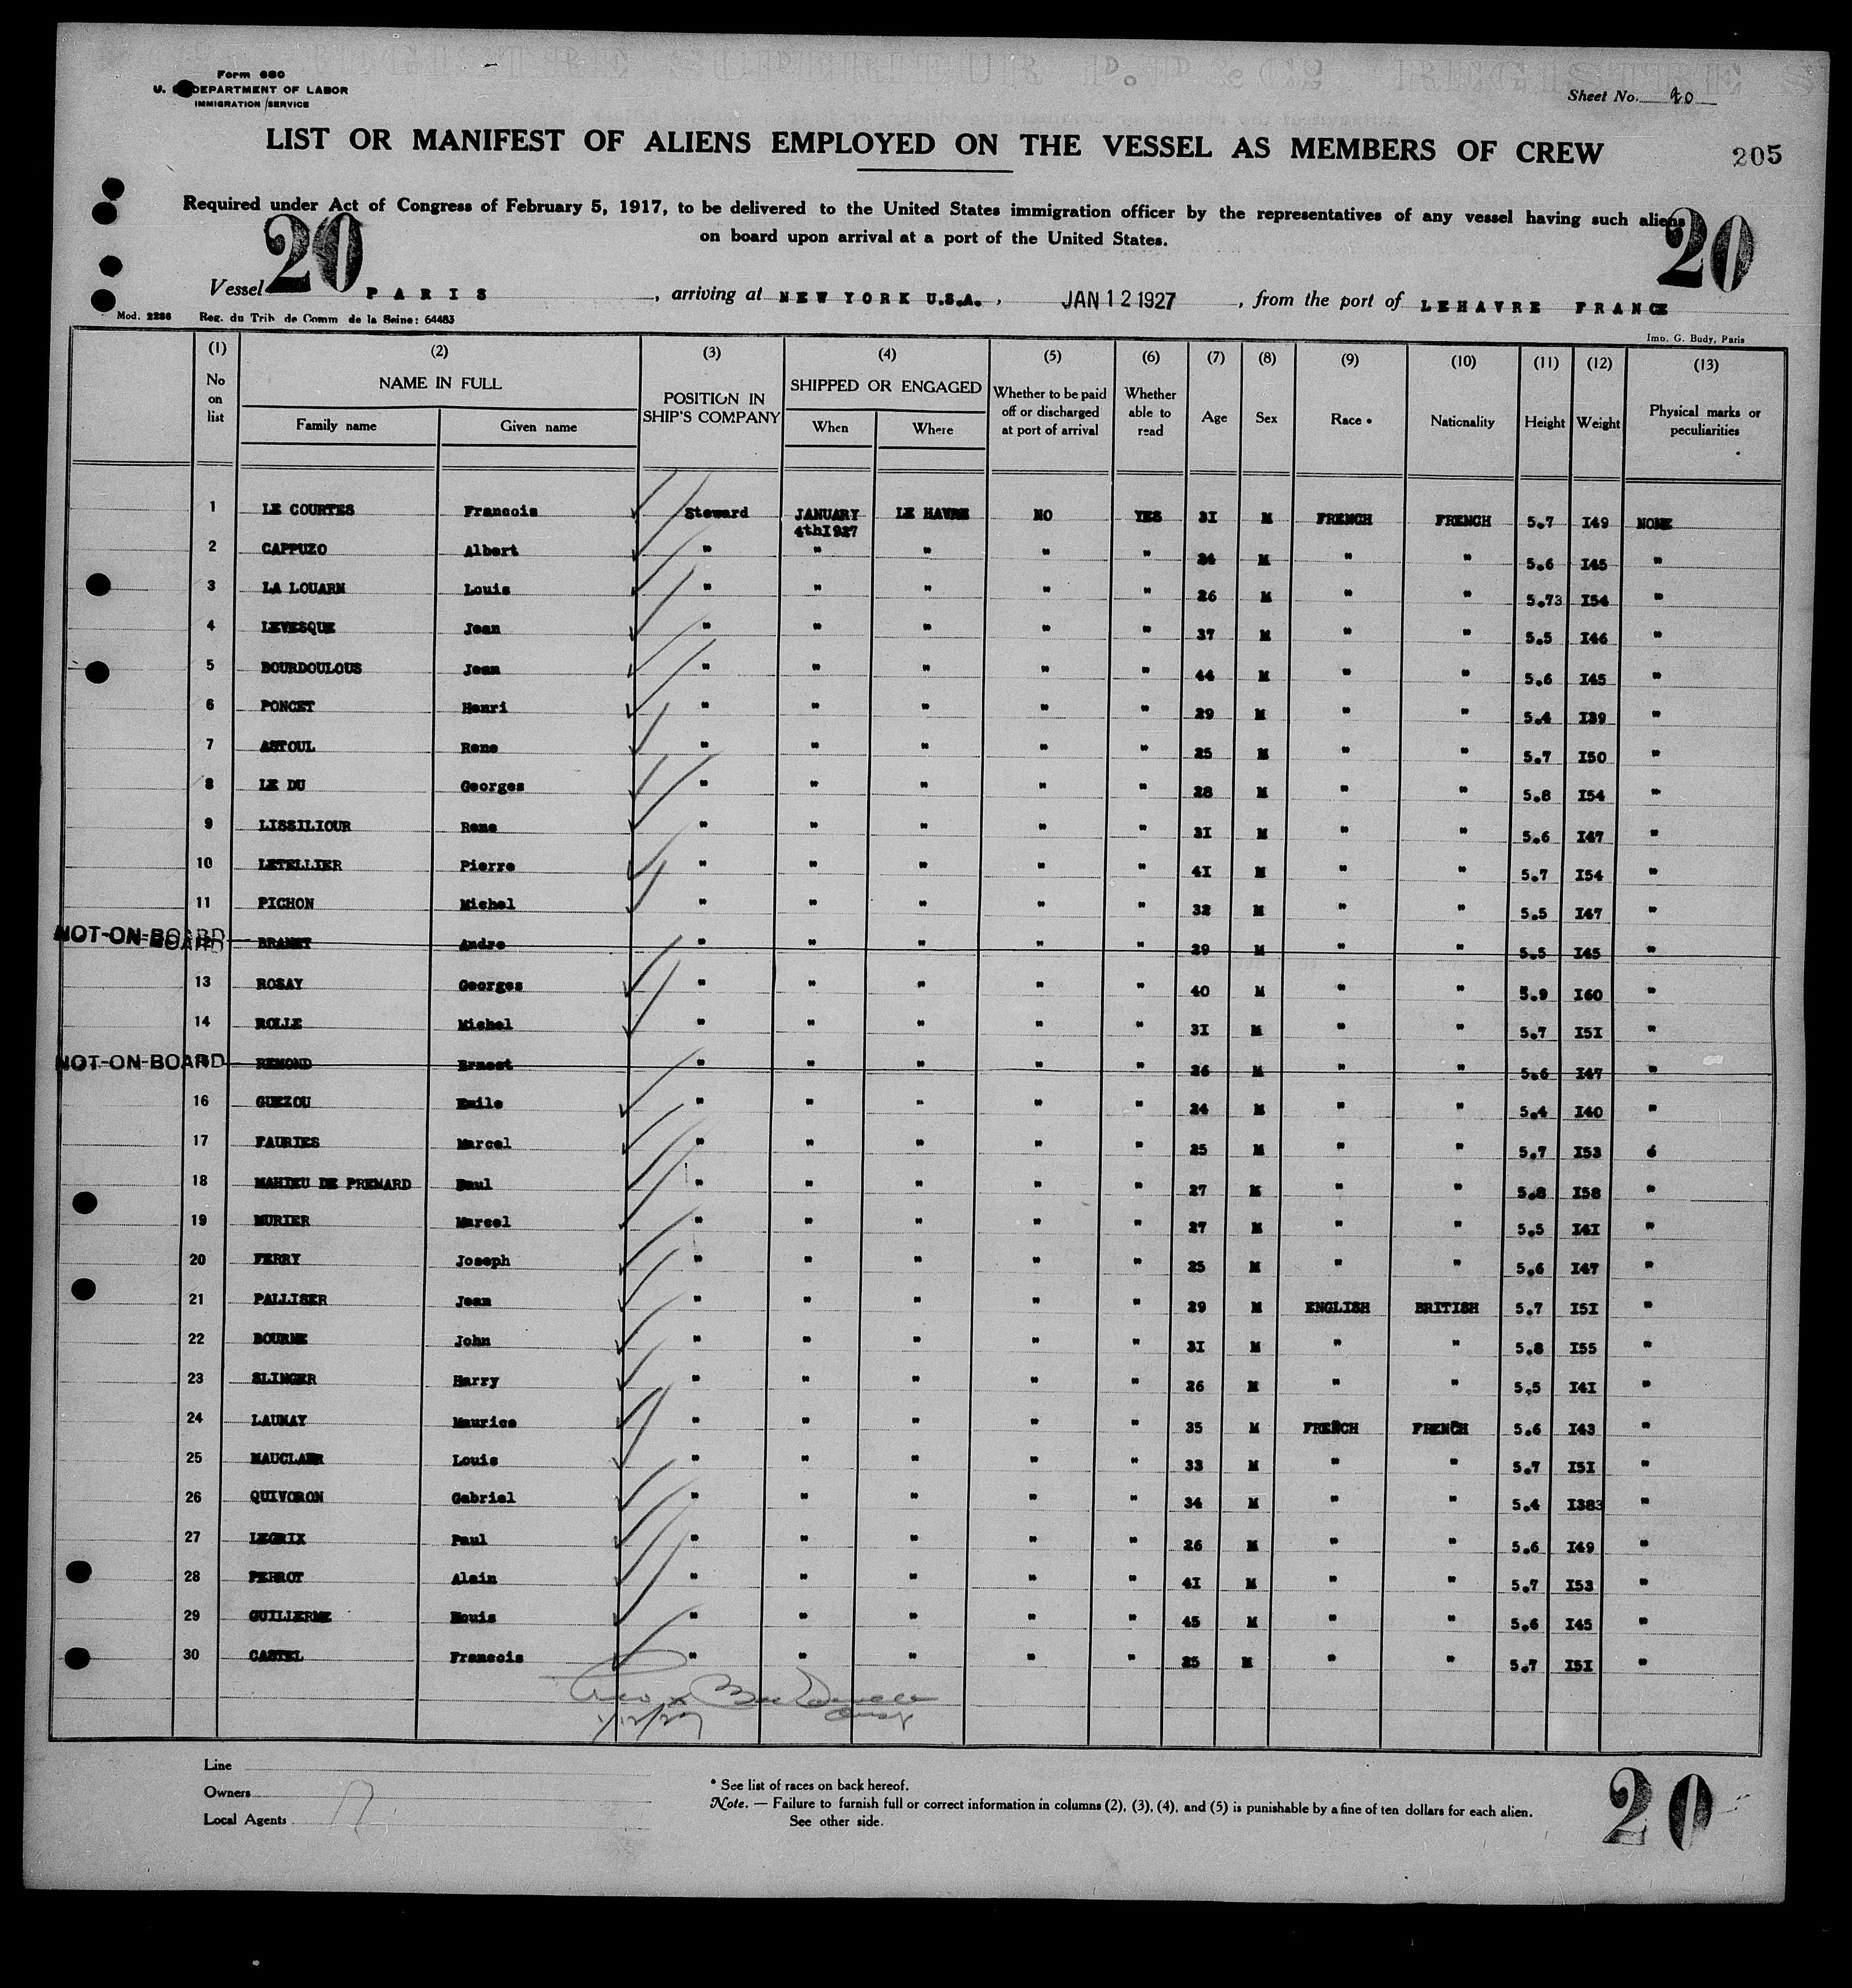 Form 680
U. S. DEPARTMENT OF LABOR
IMMIGRATION SERVICE
Sheet No. 20
LIST OR MANIFEST OF ALIENS EMPLOYED ON THE VESSEL AS MEMBERS OF CREW
205
Required under Act of Congress of February 5, 1917, to be delivered to the United States immigration officer by the representatives of any vessel having such aliens
on board upon arrival at a port of the United States.
20 20
Vessel PARIS, arriving at NEW YORK U.S.A., JAN 12 1927, from the port of LEHAVRE FRANCE
Mod. 2286 Reg. du Trib. de Comm. de la Seine: 64483
Imp. G. Budy, Paris
(1) (2) (3) (4) (5) (6) (7) (8) (9) (10) (11) (12) (13)
No on list NAME IN FULL POSITION IN SHIP'S COMPANY SHIPPED OR ENGAGED Whether to be paid off or discharged at port of arrival Whether able to read Age Sex Race * Nationality Height Weight Physical marks or peculiarities
Family name Given name When Where
1 LE COURTES Francois Steward JANUARY 4thI927 LE HAVRE NO YES 3I M FRENCH FRENCH 5.7 I49 NONE
2 CAPPUZO Albert " " " " " 24 M " " 5.6 I45 "
3 LA LOUARN Louis " " " " " 26 M " " 5.73 I54 "
4 LEVESQUE Jean " " " " " 37 M " " 5.5 I46 "
5 BOURDOULOUS Jean " " " " " 44 M " " 5.6 I45 "
6 PONCET Henri " " " " " 29 M " " 5.4 I39 "
7 ASTOUL Rene " " " " " 25 M " " 5.7 I50 "
8 LE DU Georges " " " " " 28 M " " 5.8 I54 "
9 LISSILIOUR Rene " " " " " 3I M " " 5.6 I47 "
10 LETELLIER Pierre " " " " " 4I M " " 5.7 I54 "
11 PICHON Michel " " " " " 32 M " " 5.5 I47 "
NOT-ON-BOARD 12 Andre " " " " " 29 M " " 5.5 I45 "
13 ROSAY Georges " " " " " 40 M " " 5.9 I60 "
14 ROLLE Michel " " " " " 3I M " " 5.7 I5I "
NOT-ON-BOARD 15 REMOND Ernest " " " " " 26 M " " 5.6 I47 "
16 GUEZOU Emile " " " " " 24 M " " 5.4 I40 "
17 FAURIES Marcel " " " " " 25 M " " 5.7 I53
18 MAHIEU DE PREMARD Paul " " " " " 27 M " " 5.8 I58 "
19 MURIER Marcel " " " " " 27 M " " 5.5 I4I "
20 FERRY Joseph " " " " " 25 M " " 5.6 I47 "
21 PALLISER Jean " " " " " 29 M ENGLISH BRITISH 5.7 I5I "
22 BOURNE John " " " " " 3I M " " 5.8 I55 "
23 SLINGER Harry " " " " " 26 M " " 5.5 I4I "
24 LAUNAY Maurice " " " " " 35 M FRENCH FRENCH 5.6 I43 "
25 MAUCLAIR Louis " " " " " 33 M " " 5.7 I5I "
26 QUIVORON Gabriel " " " " " 34 M " " 5.4 I383 "
27 LEGRIX Paul " " " " " 26 M " " 5.6 I49 "
28 PERROT Alain " " " " " 4I M " " 5.7 I53 "
29 GUILLERME Louis " " " " " 45 M " " 5.6 I45 "
30 CASTEL Francois " " " " " 25 M " " 5.7 I5I "
1/12/27
Line
Owners
Local Agents
* See list of races on back hereof.
Note. — Failure to furnish full or correct information in columns (2), (3), (4), and (5) is punishable by a fine of ten dollars for each alien.
See other side.
20